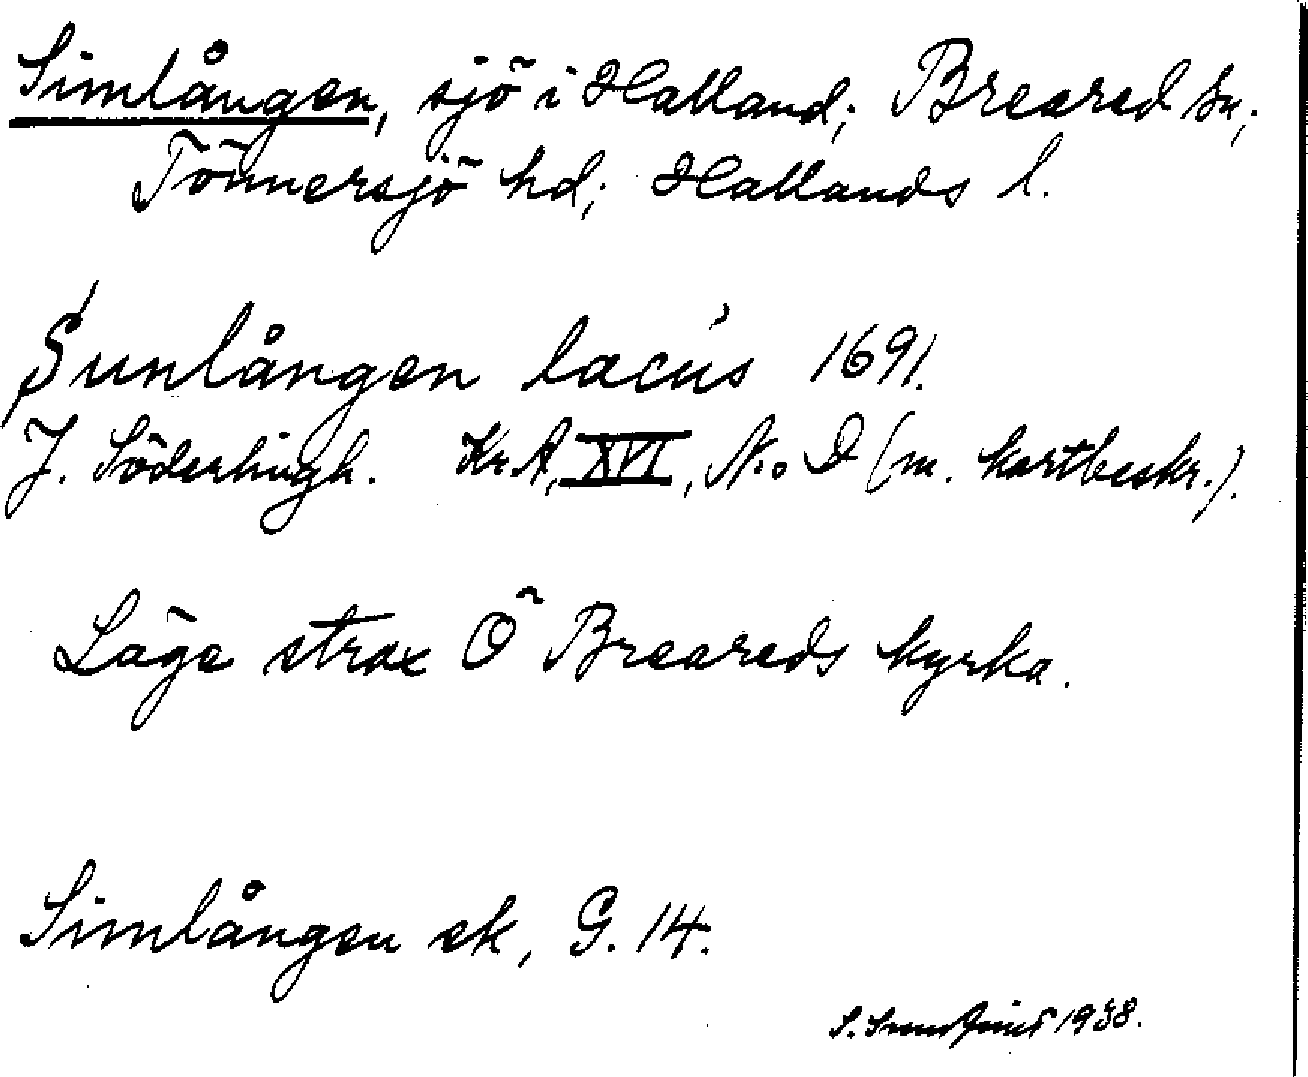 Simlången, sjö i Halland; Breared sn;
Tönnersjö hd; Hallands l.
Sunlången lacus 1691.
J. Söderlingh. Kr.A, XVI, N:o 2 (m. kartbeskr.).
Läge strax Ö Breareds kyrka.
Simlången ek, G. 14.
S. 1938.